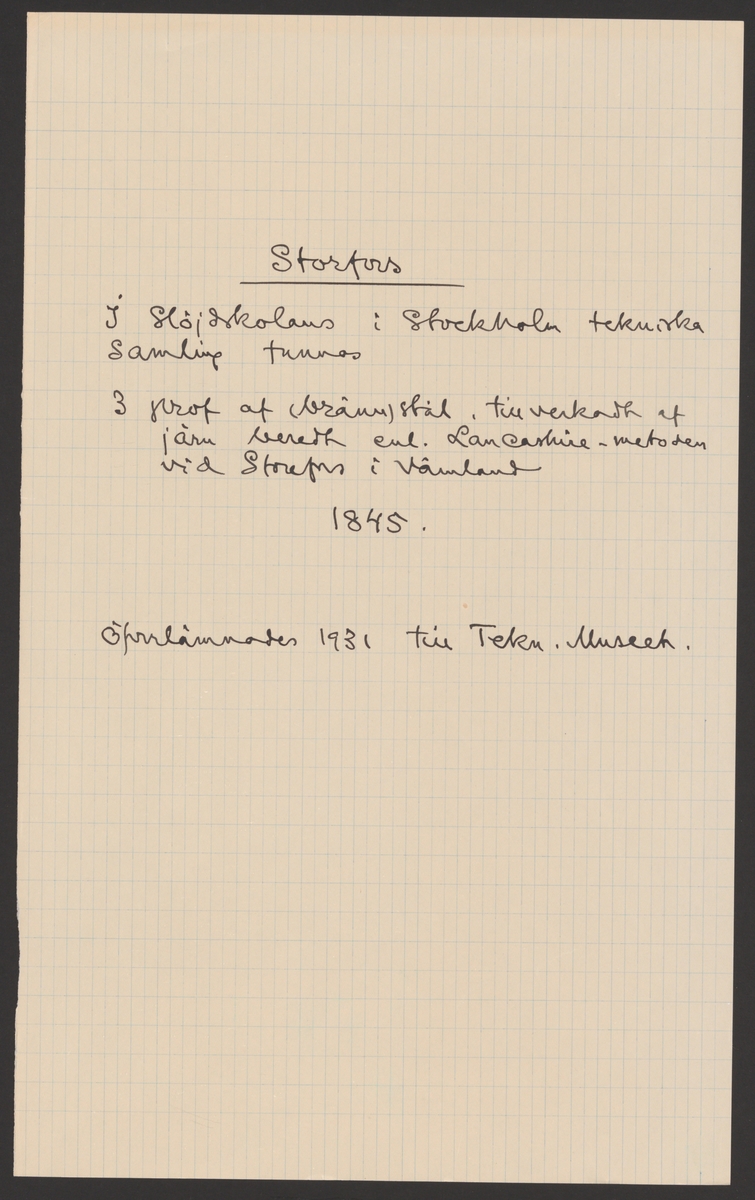 Storfors
I Slöjdskolans i Stockholm tekniska
Samling funnos
3 prof af (bränn)stål, tillverkadt af
järn beredt enl. Lancashire-metoden
vid Storfors i Värmland
1845.
Öfverlämnades 1931 till Tekn. Museet.